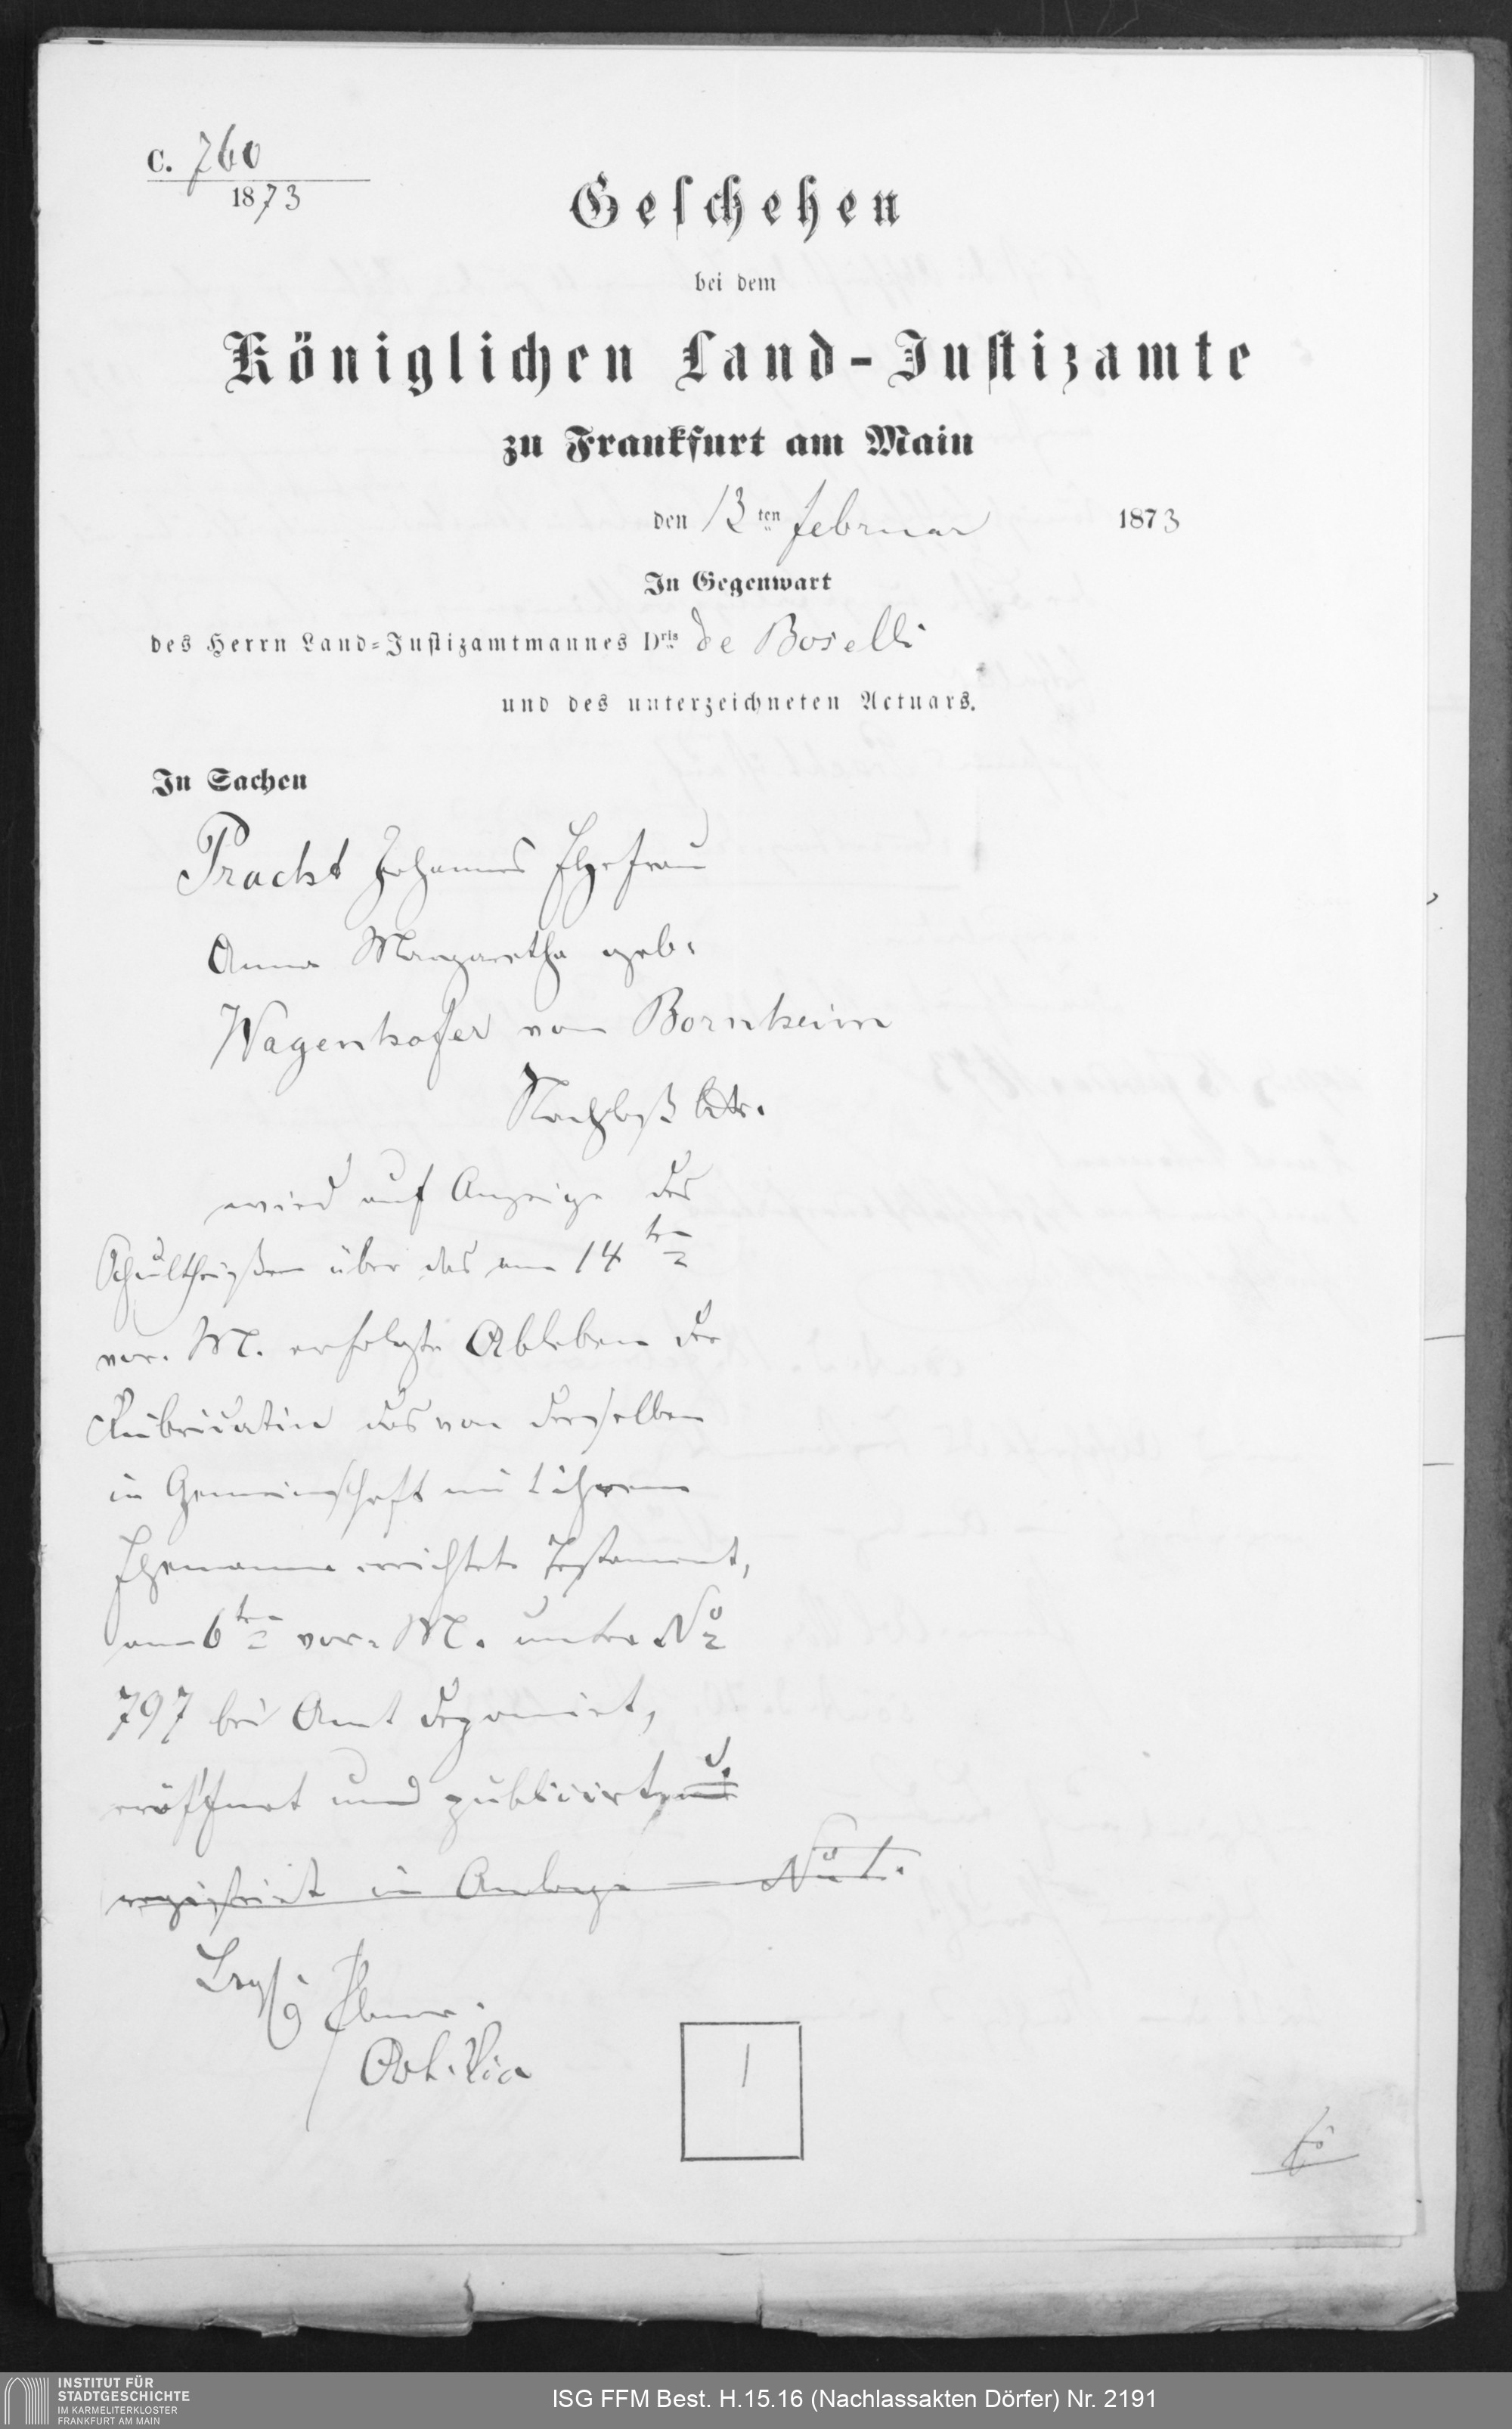 C. 760
1873
Geschehen
bei dem
Königlichen Land-Justizamte
zu Frankfurt am Main
den 13ten Februar 1873
In Gegenwart
des Herrn Land-Justizamtmannes Dris de Boselli
und des unterzeichneten Actuars.
In Sachen
Pracht Johannes Ehefrau
Anna Margaretha geb.
Wagenhofer von Bornheim
Nachlaß btr.
wird auf Anzeige des
Schultheißen über das am 14ten
vor. M. erfolgte Ableben der
Rubricatin das von derselben
in Gemeinschaft mit ihrem
Ehemanne errichtete Testament,
am 6ten vor. M. unter No
797 bei Amt deponirt,
eröffnet und publicirt, u.
registrirt in Anlage No 1.
1
INSTITUT FÜR
STADTGESCHICHTE
IM KARMELITERKLOSTER
FRANKFURT AM MAIN
ISG FFM Best. H.15.16 (Nachlassakten Dörfer) Nr. 2191